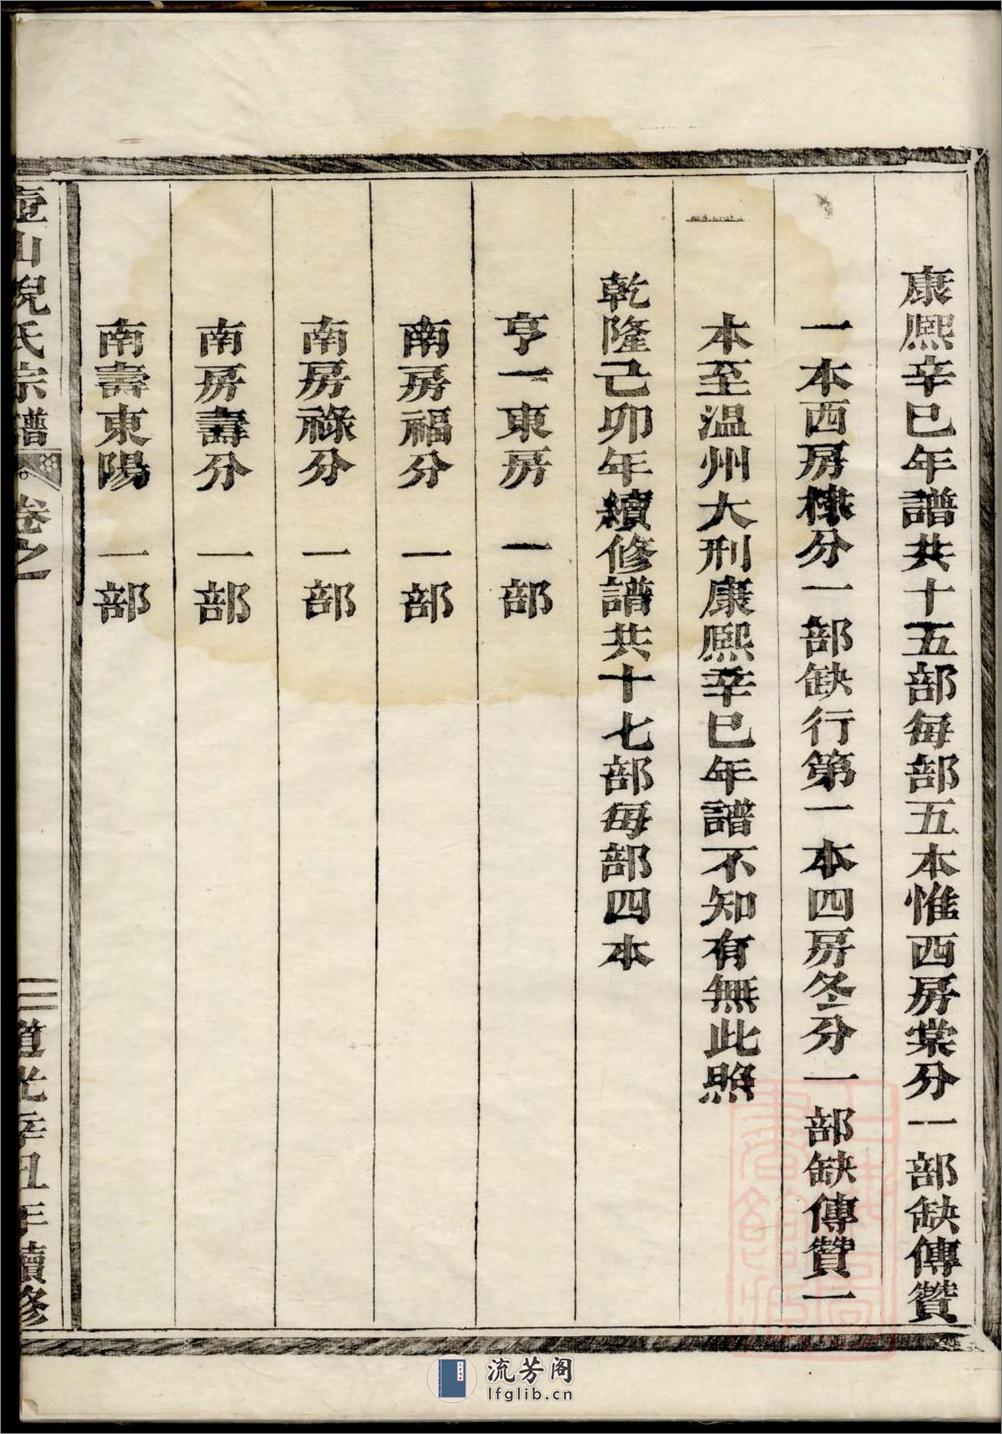 康熙辛巳年譜共十五部每部五本惟西房棠分一部缺傳贊
一本西房棣分一部缺行第一本四房冬分一部缺傳贊一
本至温州大刑康熙辛巳年譜不知有無此照
乾隆己卯年續修譜共十七部每部四本
亨一東房　一部
南房福分　一部
南房祿分　一部
南房壽分　一部
南壽東陽　一部
壺山倪氏宗譜　卷之一　二　道光辛丑年續修
流芳阁
lfglib.cn